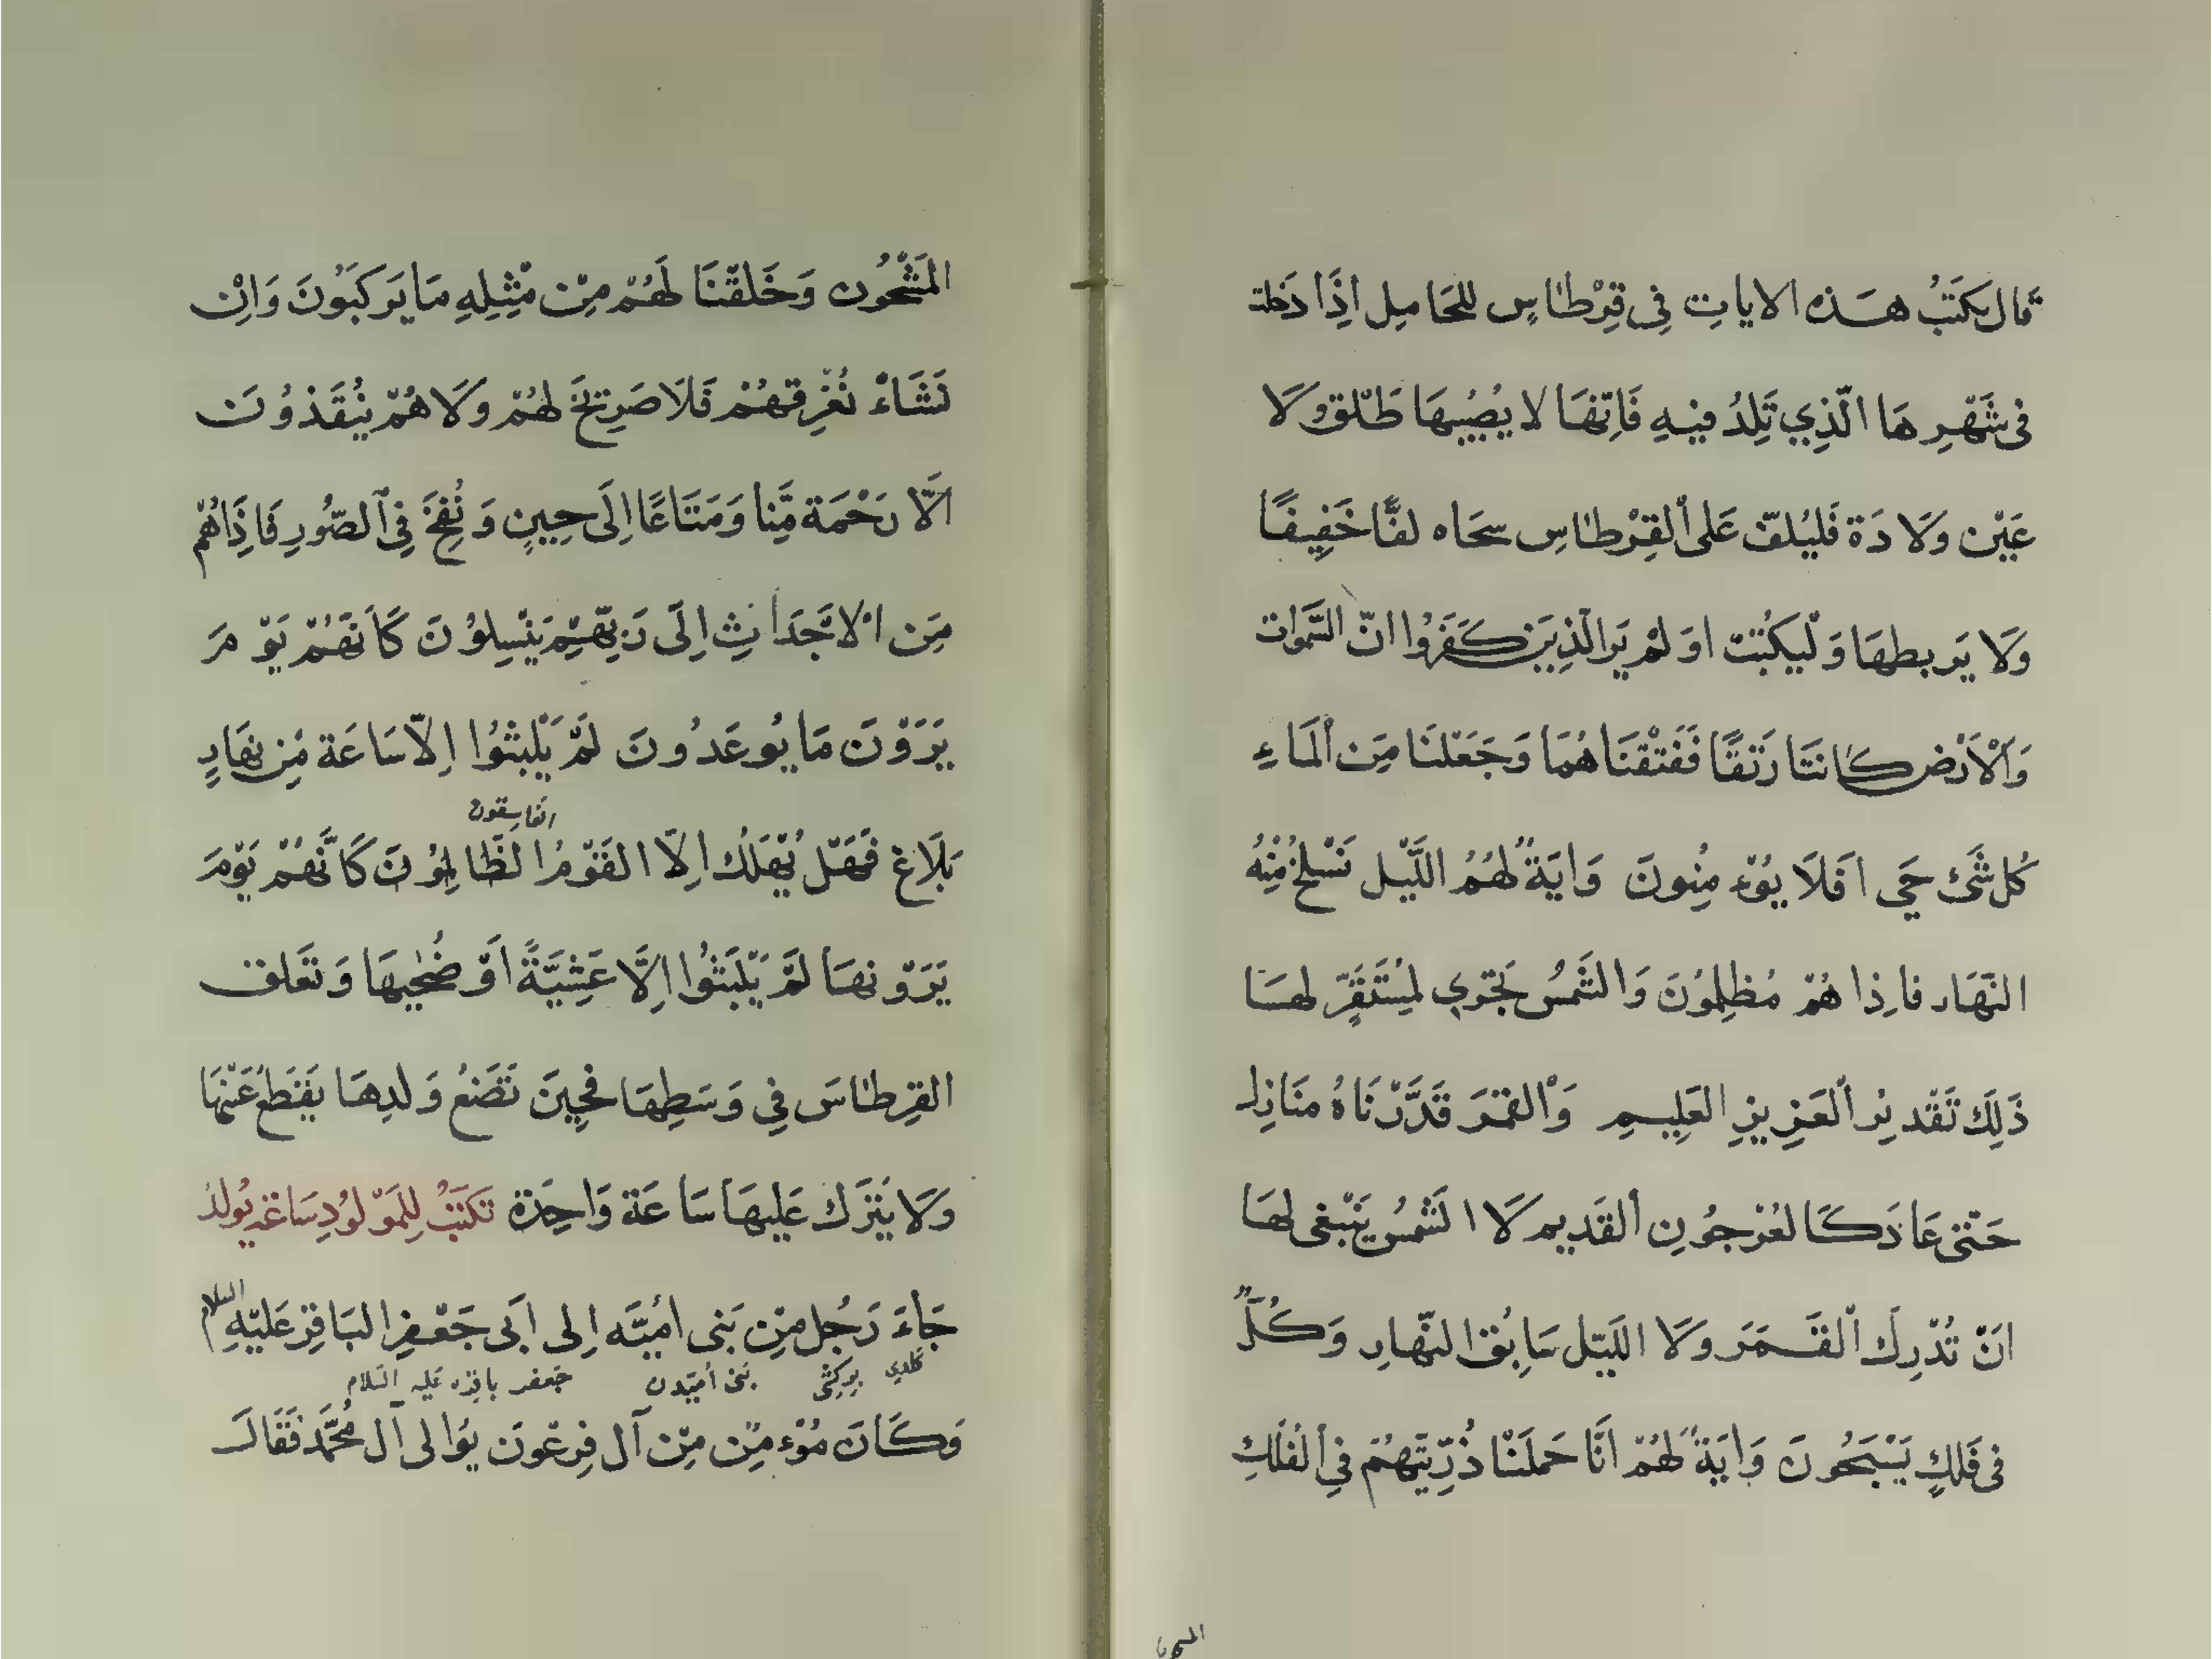 قال يكتب هذه الايات فى قرطاس للحامل اذا دخلت
فى شهر ها الذي تلد فيه فانها لا يصيبها طلق ولا
عين ولا دة فليلف على القرطاس سحاه لفا خفيفا
ولا يربطها وليكتب اولم ير الذين كفروا ان السموات
والارض كانتا رتقا ففتقناهما وجعلنا من الماء
كل شئ حي افلا يؤمنون واية لهم الليل نسلخ منه
النهار فاذا هم مظلمون والشمس تجري لمستقر لها
ذلك تقدير العزيز العليم والقمر قدرناه منازل
حتى عاد كالعرجون القديم لا الشمس ينبغى لها
ان تدرك القمر ولا الليل سابق النهار وكل
فى فلك يسبحون واية لهم انا حملنا ذريتهم في الفلك
المشحون
المشحون وخلقنا لهم من مثله ما يركبون وان
نشاء نغرقهم فلا صريخ لهم ولا هم ينقذون
الا رحمة منا ومتاعا الى حين ونفخ في الصور فاذاهم
من الاجداث الى ربهم ينسلون كأنهم يوم
يرون ما يوعدون لم يلبثوا الا ساعة من نهار
الفاسقون
بلاغ فهل يهلك الا القوم الظالمون كانهم يوم
يرونها لم يلبثوا الا عشية او ضحيها وتعلق
القرطاس في وسطها فحين تضع ولدها يقطع عنها
ولا يترك عليها ساعة واحدة تكتب للمولود ساعة يولد
جاء رجل من بنى أمية الى ابى جعفر الباقر عليه السلام
كلدي بركشى بنى أميدن جعفر باقره عليه السلام
وكان مؤمن من آل فرعون يوالى آل محمد فقال